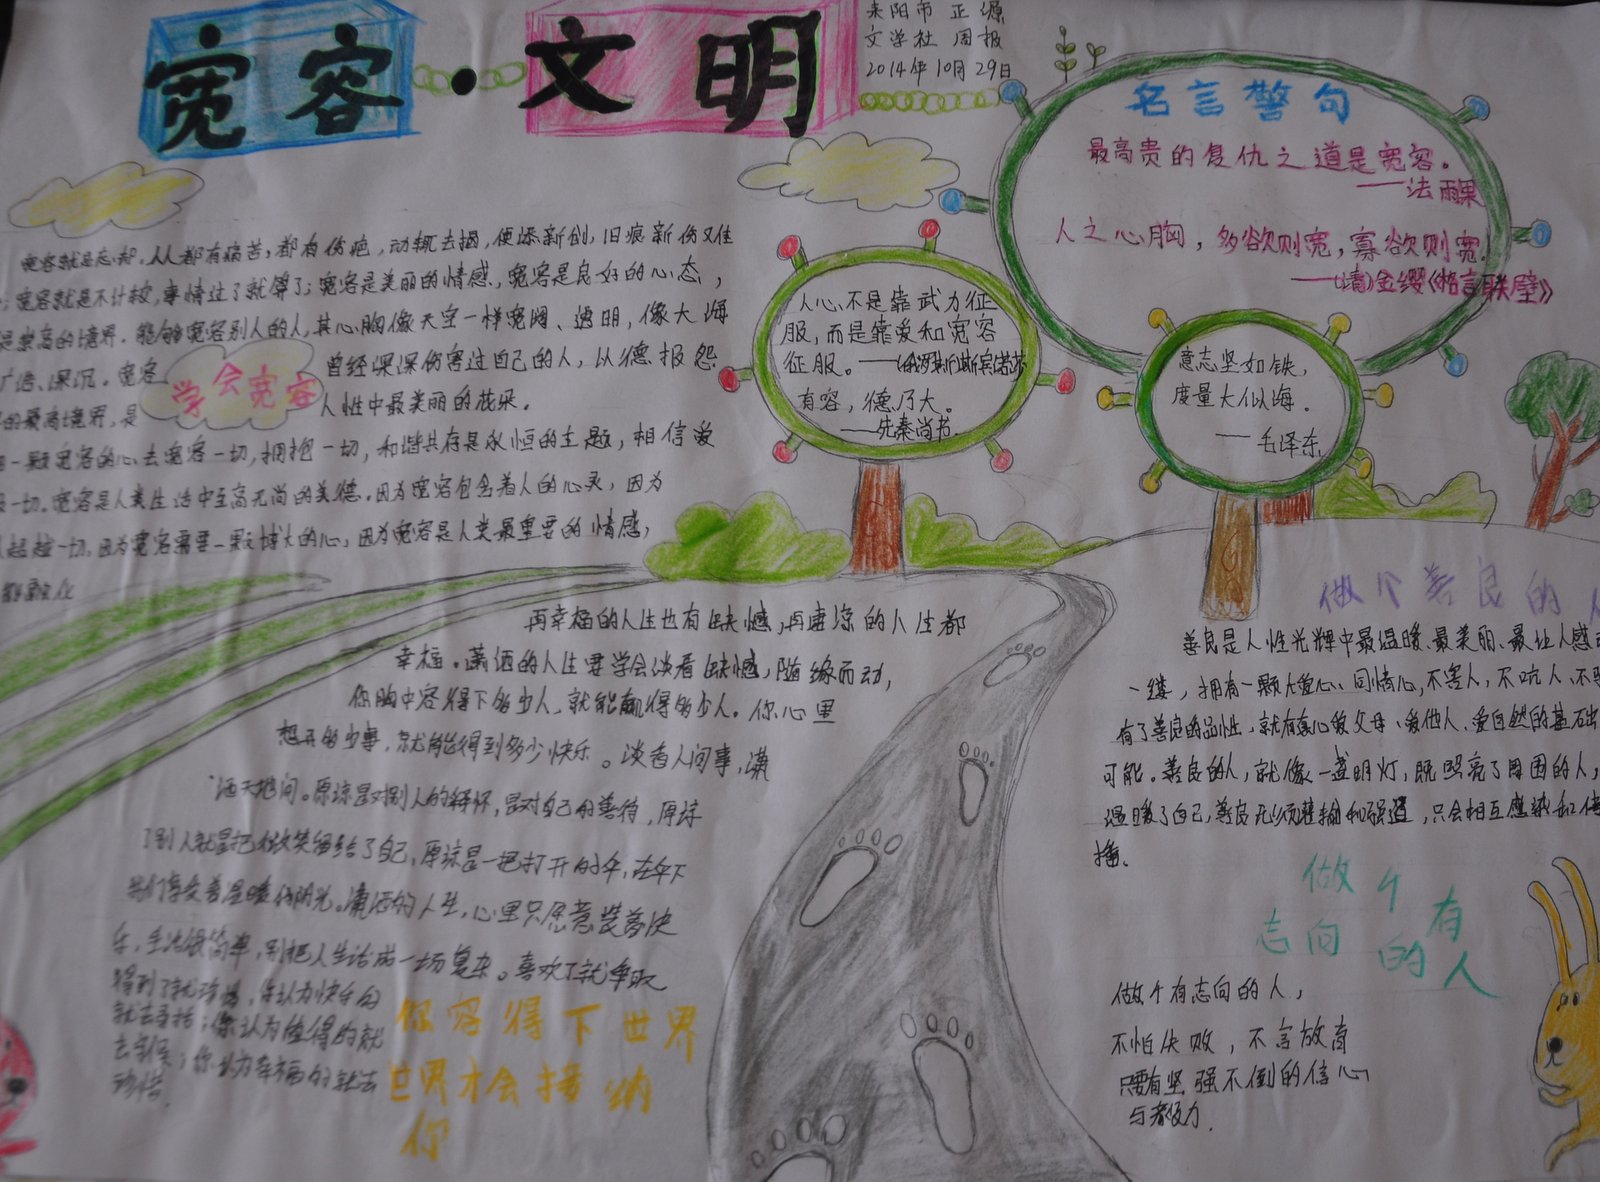 宽容·文明
耒阳市 正源
文学社 周报
2014年10月29日
名言警句
最高贵的复仇之道是宽容。
——法 雨果
人之心胸，多欲则宽，寡欲则宽！
——(清)金缨《格言联璧》
人心不是靠武力征
服，而是靠爱和宽容
征服。
有容，德乃大。
——先秦尚书
意志坚如铁，
度量大似海．
——毛泽东
学会宽容
宽容就是忘却．人人都有痛苦，都有伤疤，动辄去揭，便添新创，旧痕新伤又难
；宽容就是不计较，事情过了就算了；宽容是美丽的情感，宽容是良好的心态，
是崇高的境界．能够宽容别人的人，其心胸像天空一样宽阔、透明，像大海
广浩、深沉。宽容
曾经深深伤害过自己的人，以德报怨
的最高境界，是
人性中最美丽的花朵．
一颗宽容的心去宽容一切，拥抱一切，和谐共存是永恒的主题，相信爱
一切．宽容是人类生活中至高无尚的美德．因为宽容包含着人的心灵，因为
超越一切，因为宽容需要一颗博大的心，因为宽容是人类最重要的情感，
再幸福的人生也有缺憾，再凄凉的人生都
幸福。潇洒的人生要学会淡看缺憾，随缘而动，
你胸中容得下多少人，就能赢得多少人。你心里
想开多少事，就能得到多少快乐。淡看人间事，潇
洒天地间。原谅是对别人的释怀，是对自己的善待，原谅
了别人就是把微笑留给了自己，原谅是一把打开的伞，在伞下
我们享受着温暖的阳光。潇洒的人生，心里只愿意装着快
乐，生活很简单，别把人生活成一场复杂。喜欢了就争取
得到了就珍惜，你认为快乐的
就去寻找；你认为值得的就
去守候；你认为幸福的就去
珍惜．
你容得下世界
世界才会接纳
你
做个善良的人
善良是人性光辉中最温暖、最美丽、最让人感
一缕，拥有一颗大爱心、同情心，不害人，不坑人、不
有了善良的品性，就有真心爱父母、爱他人、爱自然的基础
可能。善良的人，就像一盏明灯，既照亮了周围的人，
温暖了自己，善良无须灌输和强迫，只会相互感染和传
播．
做个有
志向的人
做个有志向的人，
不怕失败，不言放弃
只要有坚强不倒的信心
与毅力．